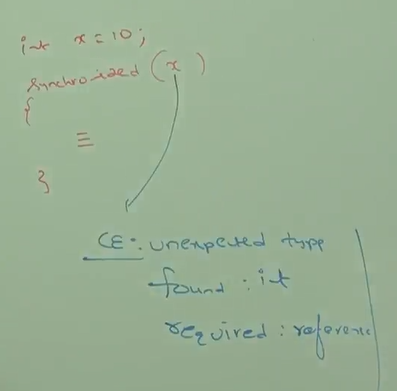 int x = 10;
Synchronized (x)
{
≡
}
CE: unexpected type
found : int
required : reference